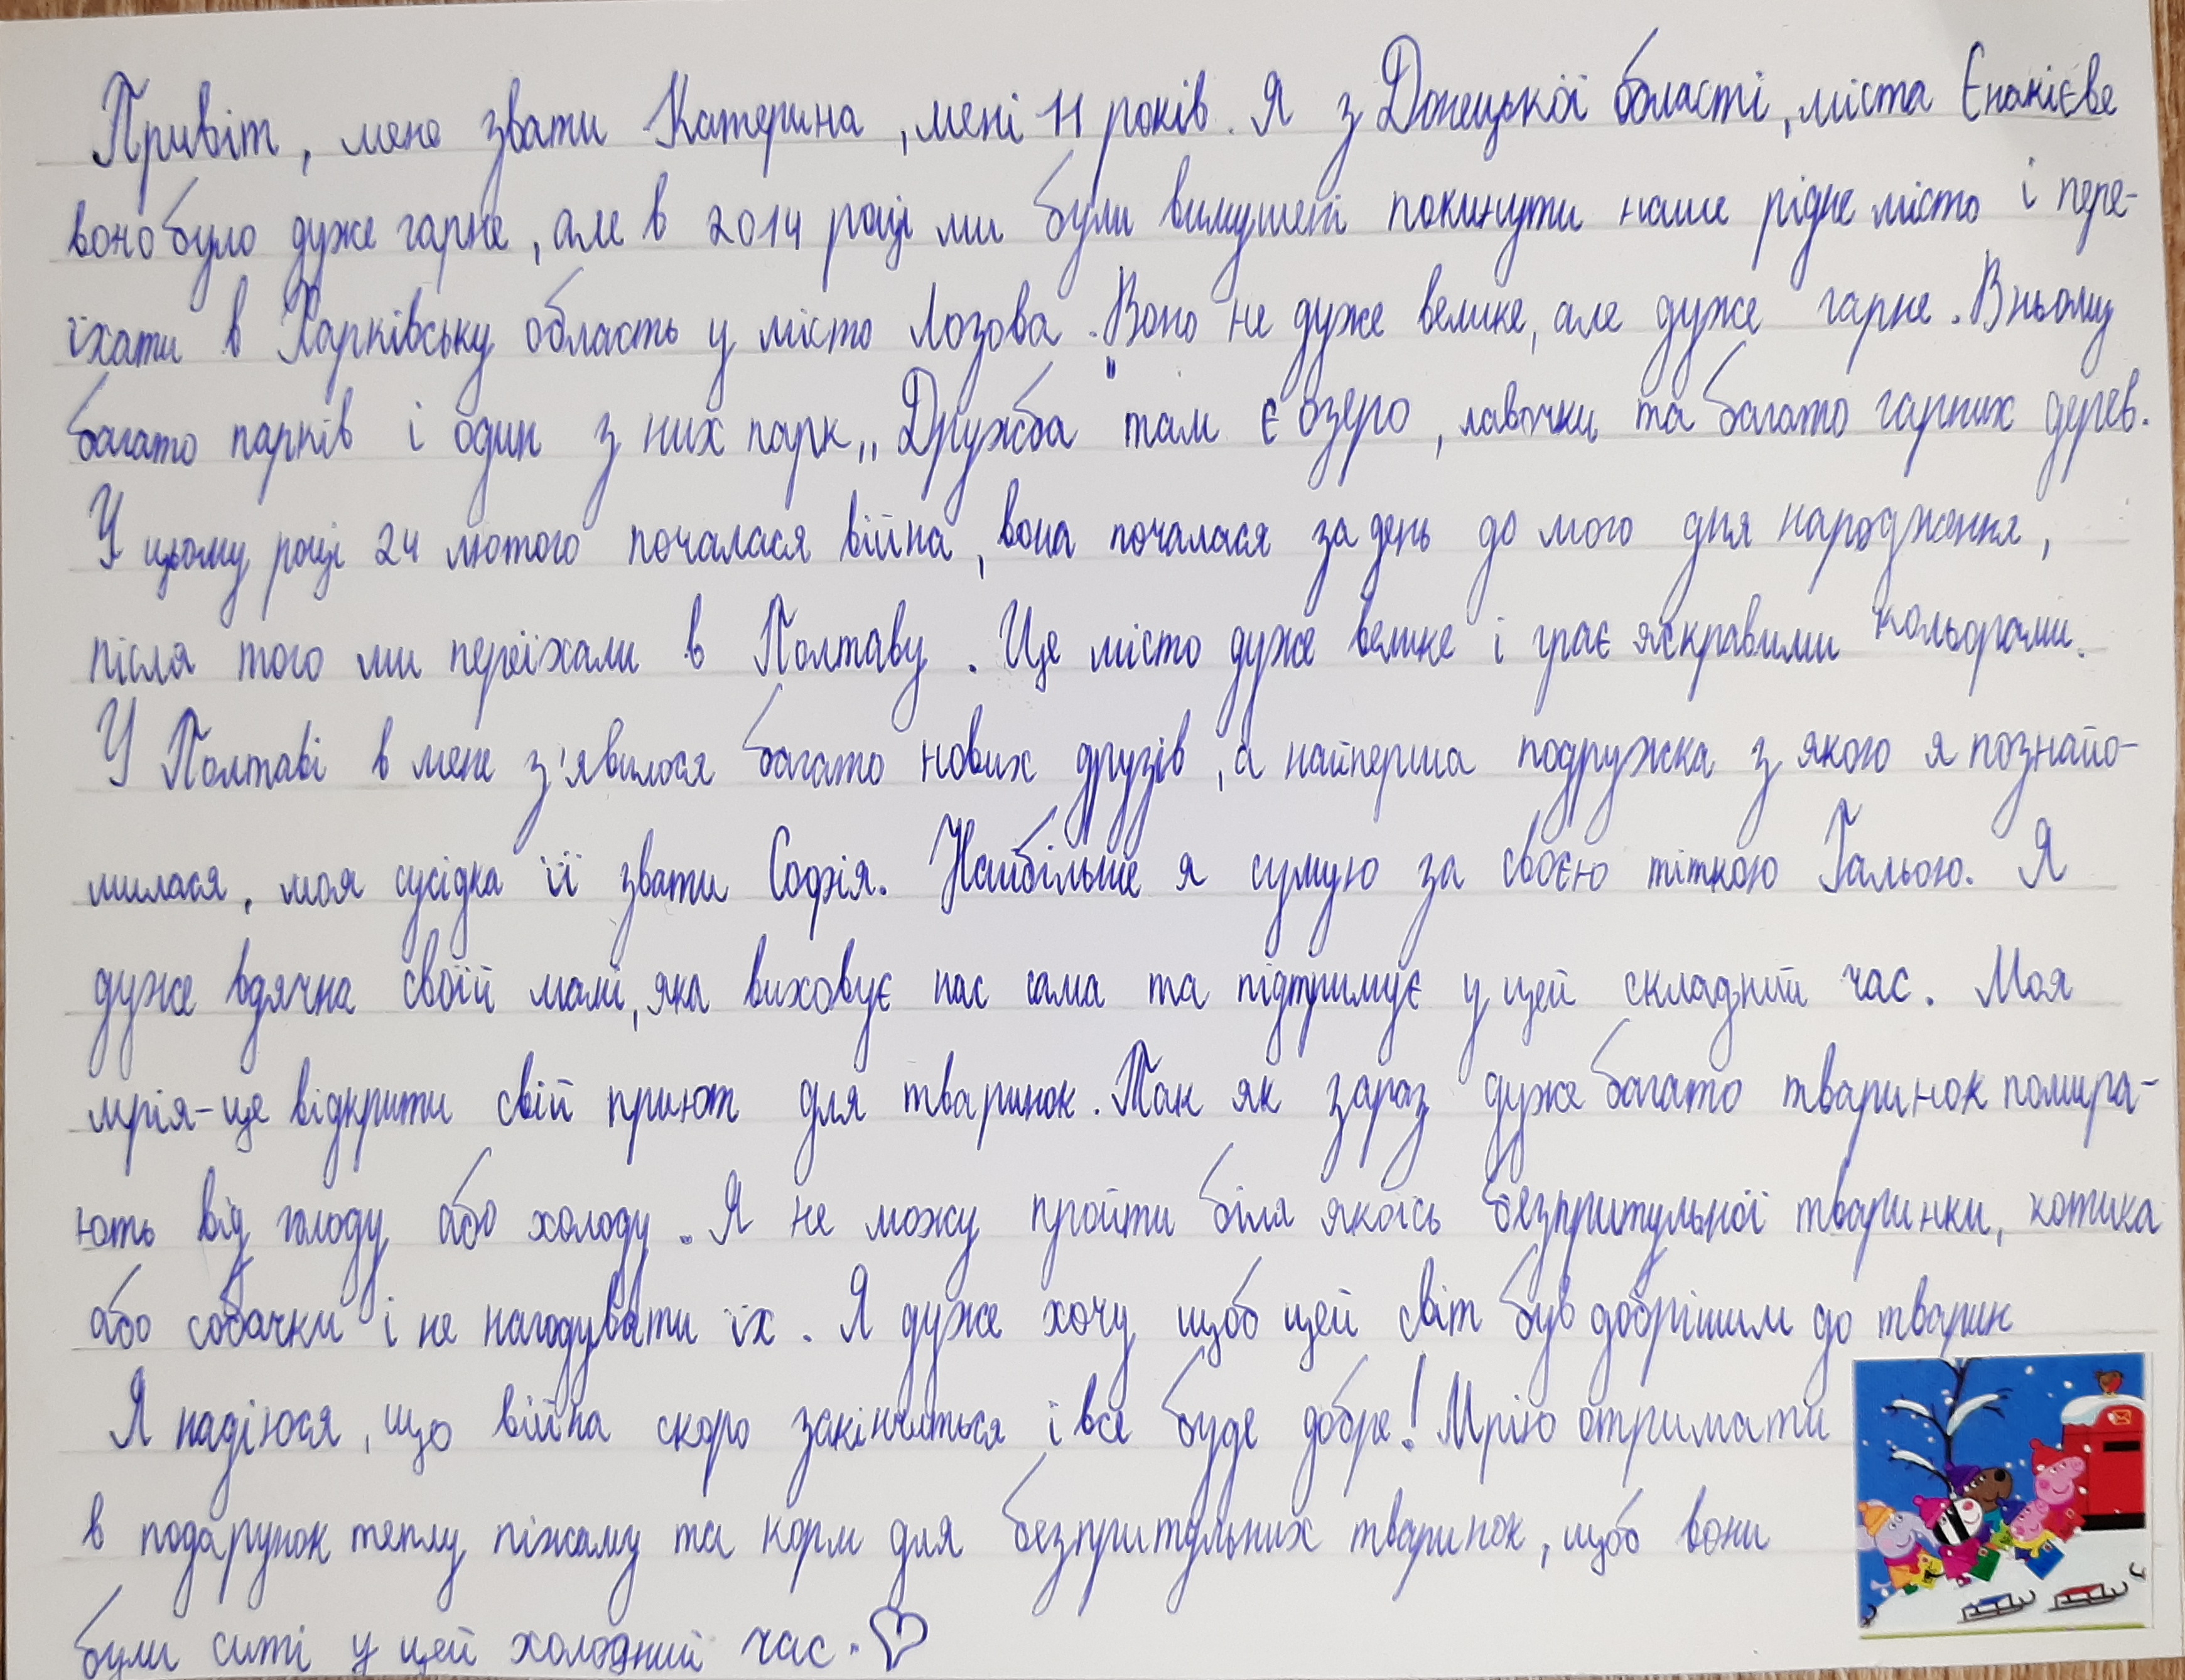 Привіт, мене звати Катерина, мені 11 років. Я з Донецької області, міста Єнакієве
воно було дуже гарне, але в 2014 році ми були вимушені покинути наше рідне місто і пере-
їхати в Харківську область у місто Лозова. Воно не дуже велике, але дуже гарне. В ньому
багато парків і один з них парк „Дружба" там є озеро, лавочки та багато гарних дерев.
У цьому році 24 лютого почалася війна, вона почалася за день до мого дня народження,
після того ми переїхали в Полтаву. Це місто дуже велике і грає яскравими кольорами.
У Полтаві в мене з'явилося багато нових друзів, а найперша подружка з якого я познайо-
милася, моя сусідка її звати Софія. Найбільше я сумую за своєю тіткою Гальою. Я
дуже вдячна своїй мамі, яка виховує нас сама та підтримує у цей складний час. Моя
мрія-це відкрити свій приют для тваринок. Так як зараз дуже багато тваринок помира-
ють від голоду або холоду. Я не можу пройти біля якоїсь безпритульної тваринки, котика
або собачки і не нагодувати їх. Я дуже хочу щоб цей світ був добрішим до тварин
Я надіюся, що війна скоро закінчиться і все буде добре! Мрію отримати
в подарунок теплу піжаму та корм для безпритульних тваринок, щоб вони
були ситі у цей холодний час.